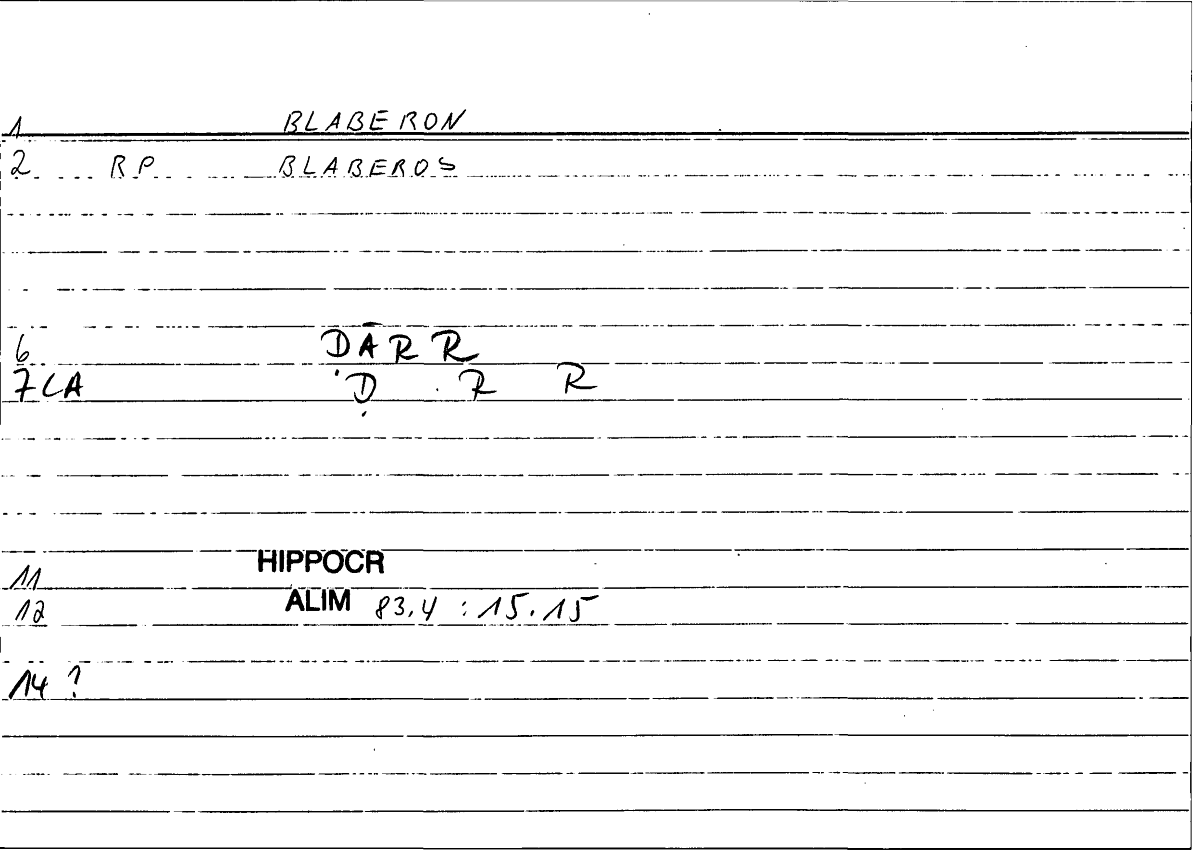 1 BLABERON
2 RP BLABEROS
6 DĀRR
7CA Ḍ R R
11 HIPPOCR
12 ALIM 83,4 : 15.15
14 ?